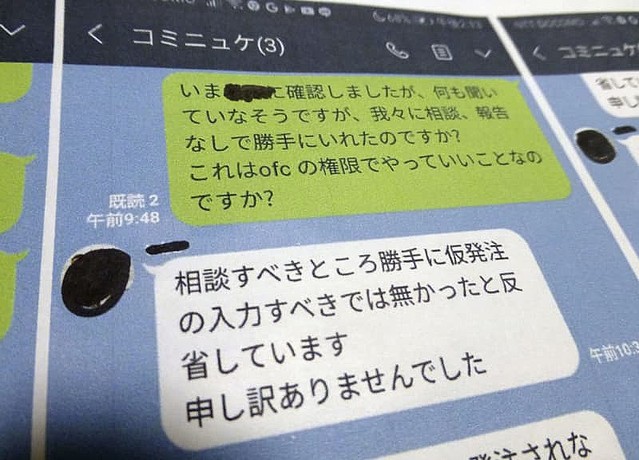 コミニュケ(3)
いま に確認しましたが、何も聞い
ていなそうですが、我々に相談、報告
なしで勝手にいれたのですか?
これはofc の権限でやっていいことなの
ですか?
既読 2
午前9:48
相談すべきところ勝手に仮発注
の入力すべきでは無かったと反
省しています
申し訳ありませんでした
午前10:3
発注されな
コミニュケ
省して
申し